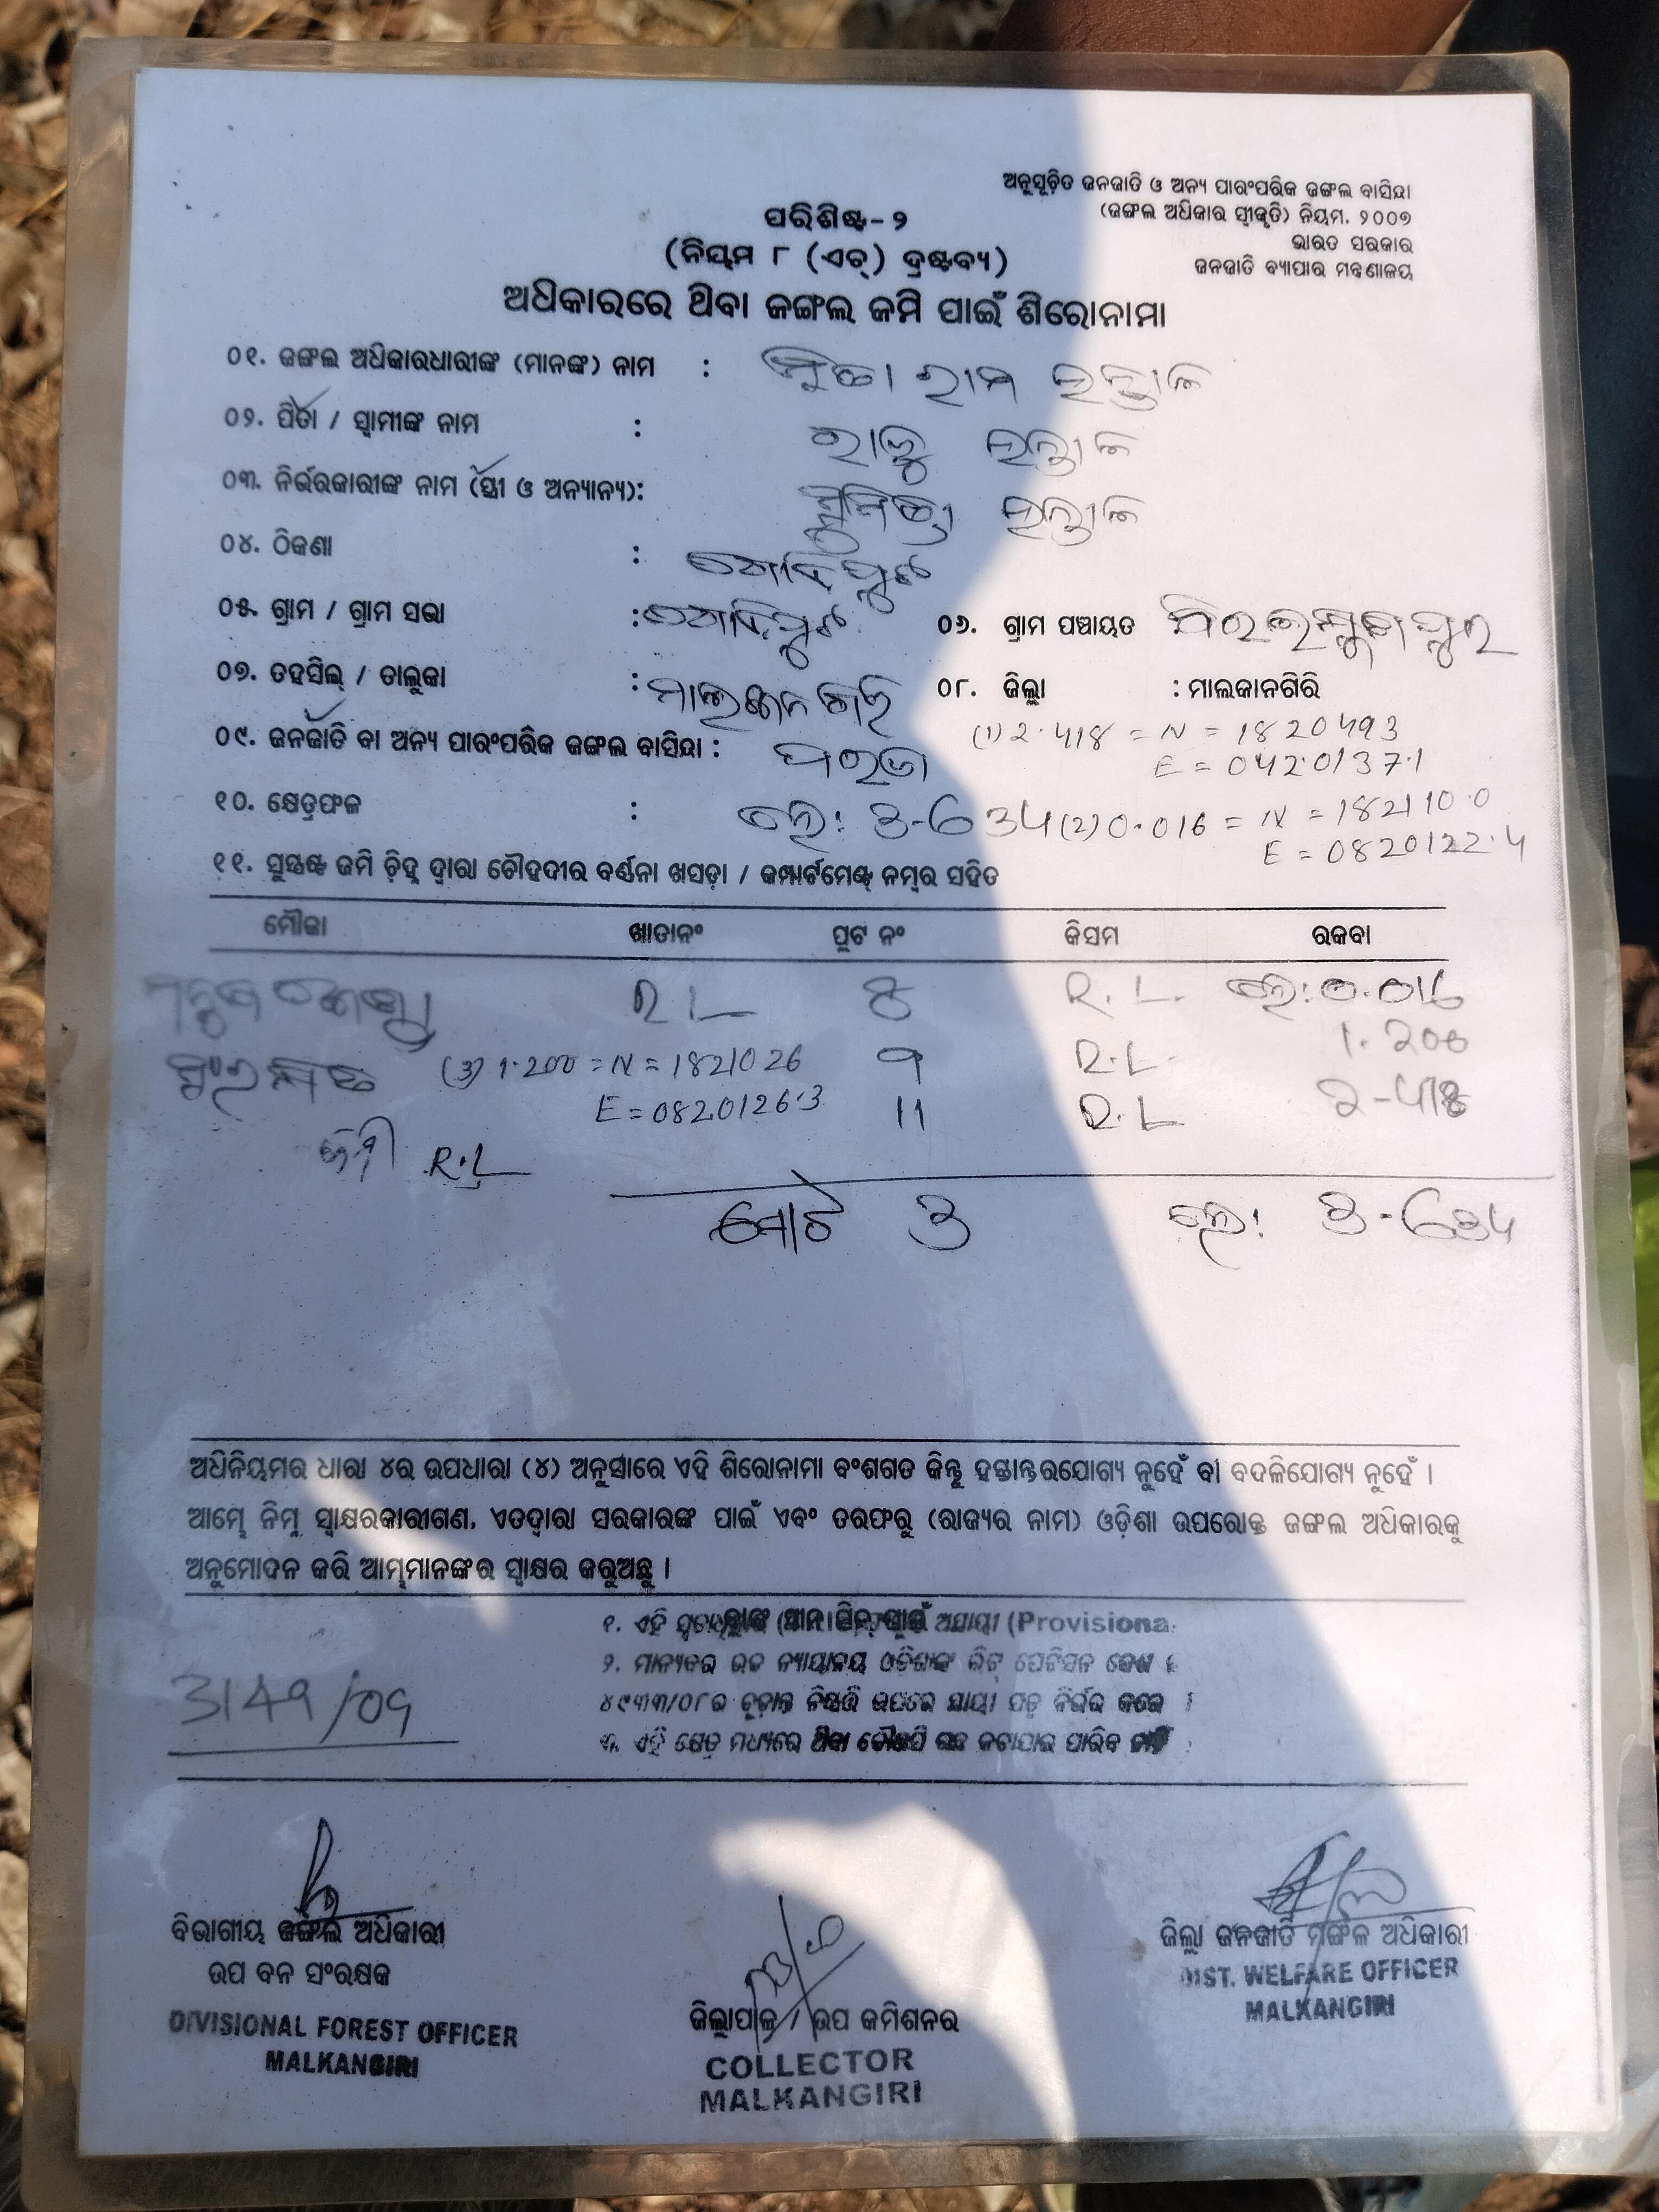 ଅନୁସୂଚିତ ଜନଜାତି ଓ ଅନ୍ୟ ପାରଂପରିକ ଜଙ୍ଗଲ ବାସିନ୍ଦା
(ଜଙ୍ଗଲ ଅଧିକାର ସ୍ୱୀକୃତି) ନିୟମ, ୨୦୦୭
ଭାରତ ସରକାର
ଜନଜାତି ବ୍ୟାପାର ମନ୍ତ୍ରଣାଳୟ
ପରିଶିଷ୍ଟ - ୨
(ନିୟମ ୮ (ଏଚ୍) ଦ୍ରଷ୍ଟବ୍ୟ)
ଅଧିକାରରେ ଥିବା ଜଙ୍ଗଲ ଜମି ପାଇଁ ଶିରୋନାମା
୦୧. ଜଙ୍ଗଲ ଅଧିକାରଧାରୀଙ୍କ (ମାନଙ୍କ) ନାମ : ରାମ
୦୨. ପିତା / ସ୍ୱାମୀଙ୍କ ନାମ :
୦୩. ନିର୍ଭରକାରୀଙ୍କ ନାମ (ସ୍ତ୍ରୀ ଓ ଅନ୍ୟାନ୍ୟ) :
୦୪. ଠିକଣା :
୦୫. ଗ୍ରାମ / ଗ୍ରାମ ସଭା : ୦୬. ଗ୍ରାମ ପଞ୍ଚାୟତ
୦୭. ତହସିଲ୍ / ତାଲୁକା : ମାଲକାନଗିରି ୦୮. ଜିଲ୍ଲା : ମାଲକାନଗିରି
(1) 2.418 = N = 1820493
E = 0420137.1
୦୯. ଜନଜାତି ବା ଅନ୍ୟ ପାରଂପରିକ ଜଙ୍ଗଲ ବାସିନ୍ଦା : ପରଜା
୧୦. କ୍ଷେତ୍ରଫଳ : ହେ: ୩-୬34 (2) 0.016 = N = 1821100.0
E = 0820122.4
୧୧. ସୁସ୍ପଷ୍ଟ ଜମି ଚିହ୍ନ ଦ୍ୱାରା ଚୌହଦୀର ବର୍ଣ୍ଣନା ଖସଡ଼ା / କମ୍ପାର୍ଟମେଣ୍ଟ୍ ନମ୍ବର ସହିତ
ମୌଜା ଖାତାନଂ ପ୍ଲଟ ନଂ କିସମ ରକବା
RL 8 R.L. ହେ: 0.016
(3) 1.200 = N = 1821026 9 R.L. 1.200
E = 0820126.3 11 R.L
R.L
ମୋଟ ୩ ହେ: ୩-୬34
ଅଧିନିୟମର ଧାରା ୪ର ଉପଧାରା (୪) ଅନୁସାରେ ଏହି ଶିରୋନାମା ବଂଶଗତ କିନ୍ତୁ ହସ୍ତାନ୍ତରଯୋଗ୍ୟ ନୁହେଁ ବା ବଦଳିଯୋଗ୍ୟ ନୁହେଁ ।
ଆମ୍ଭେ ନିମ୍ନ ସ୍ୱାକ୍ଷରକାରୀଗଣ, ଏତଦ୍ୱାରା ସରକାରଙ୍କ ପାଇଁ ଏବଂ ତରଫରୁ (ରାଜ୍ୟର ନାମ) ଓଡ଼ିଶା ଉପରୋକ୍ତ ଜଙ୍ଗଲ ଅଧିକାରକୁ
ଅନୁମୋଦନ କରି ଆମ୍ଭମାନଙ୍କର ସ୍ୱାକ୍ଷର କରୁଅଛୁ ।
୧. ଏହି (Provisiona
୨. ମାନ୍ୟବର ଉଚ୍ଚ ନ୍ୟାୟାଳୟ ଓଡ଼ିଶାଙ୍କ ରିଟ୍ ପେଟିସନ କେଶ
3149/09
୪୯୩୩/୦୮ର ଚୂଡ଼ାନ୍ତ ନିଷ୍ପତ୍ତି ଉପରେ ନିର୍ଭର କରେ
୩. ଏହି କ୍ଷେତ୍ର ମଧ୍ୟରେ ଥିବା କୌଣସି ଗଛ କଟାଯାଇ ପାରିବ ନାହିଁ
ବିଭାଗୀୟ ଜଙ୍ଗଲ ଅଧିକାରୀ
ଉପ ବନ ସଂରକ୍ଷକ
DIVISIONAL FOREST OFFICER
MALKANGIRI
ଜିଲ୍ଲାପାଳ / ଉପ କମିଶନର
COLLECTOR
MALKANGIRI
ଜିଲ୍ଲା ଜନଜାତି ମଙ୍ଗଳ ଅଧିକାରୀ
DIST. WELFARE OFFICER
MALKANGIRI